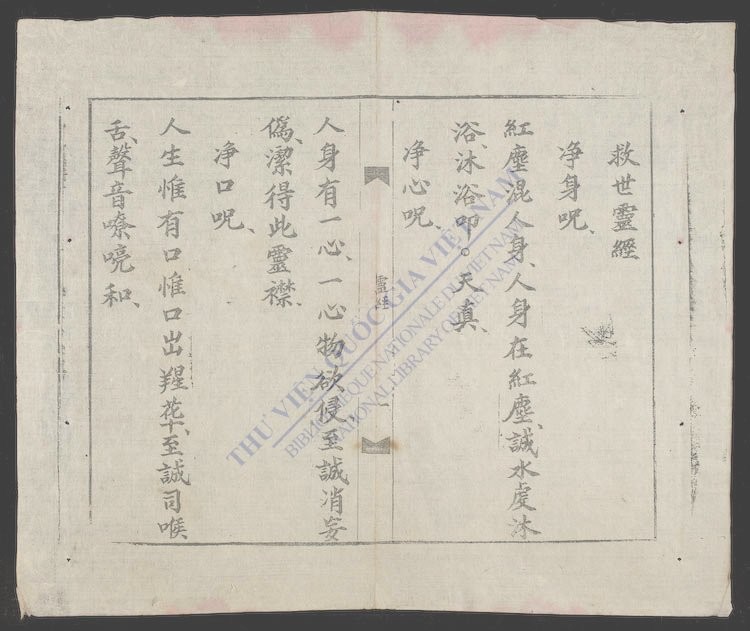 救世靈經
净身呪、
紅塵混人身、人身在紅塵、誠水處沐
浴、沐浴叩。天真、
净心呪、
靈經
一
人身有一心、一心物欲侵、至誠消妄
僞、潔得此靈襟、
净口呪、
人生惟有口惟口出 花 至誠司喉
舌、聲音嘹喨和、
THƯ VIỆN QUỐC GIA VIỆT NAM
BIBLIOTHEQUE NATIONALE DU VIETNAM
NATIONAL LIBRARY OF VIETNAM